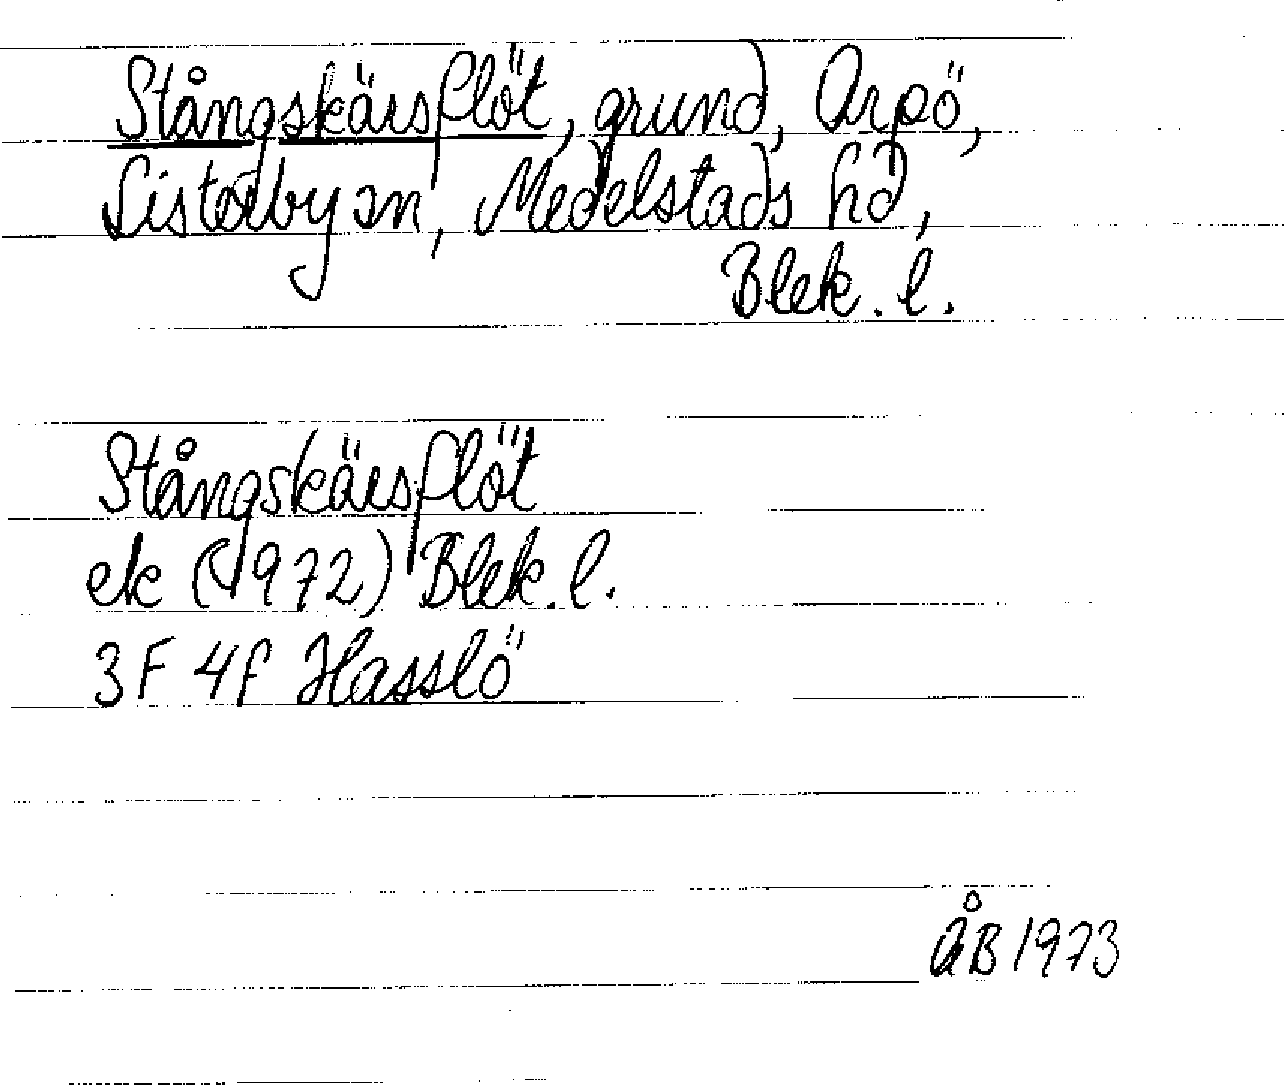 Stångskärsflöt, grund, Arpö,
Listerby sn, Medelstads hd,
Blek. l.
Stångskärsflöt
ek (1972) Blek. l.
3F 4f Hasslö
ÅB 1973